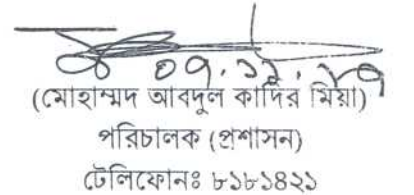 ০৭.১১.১৭
(মোহাম্মদ আবদুল কাদির মিয়া)
পরিচালক (প্রশাসন)
টেলিফোনঃ ৮১৮১৪২১